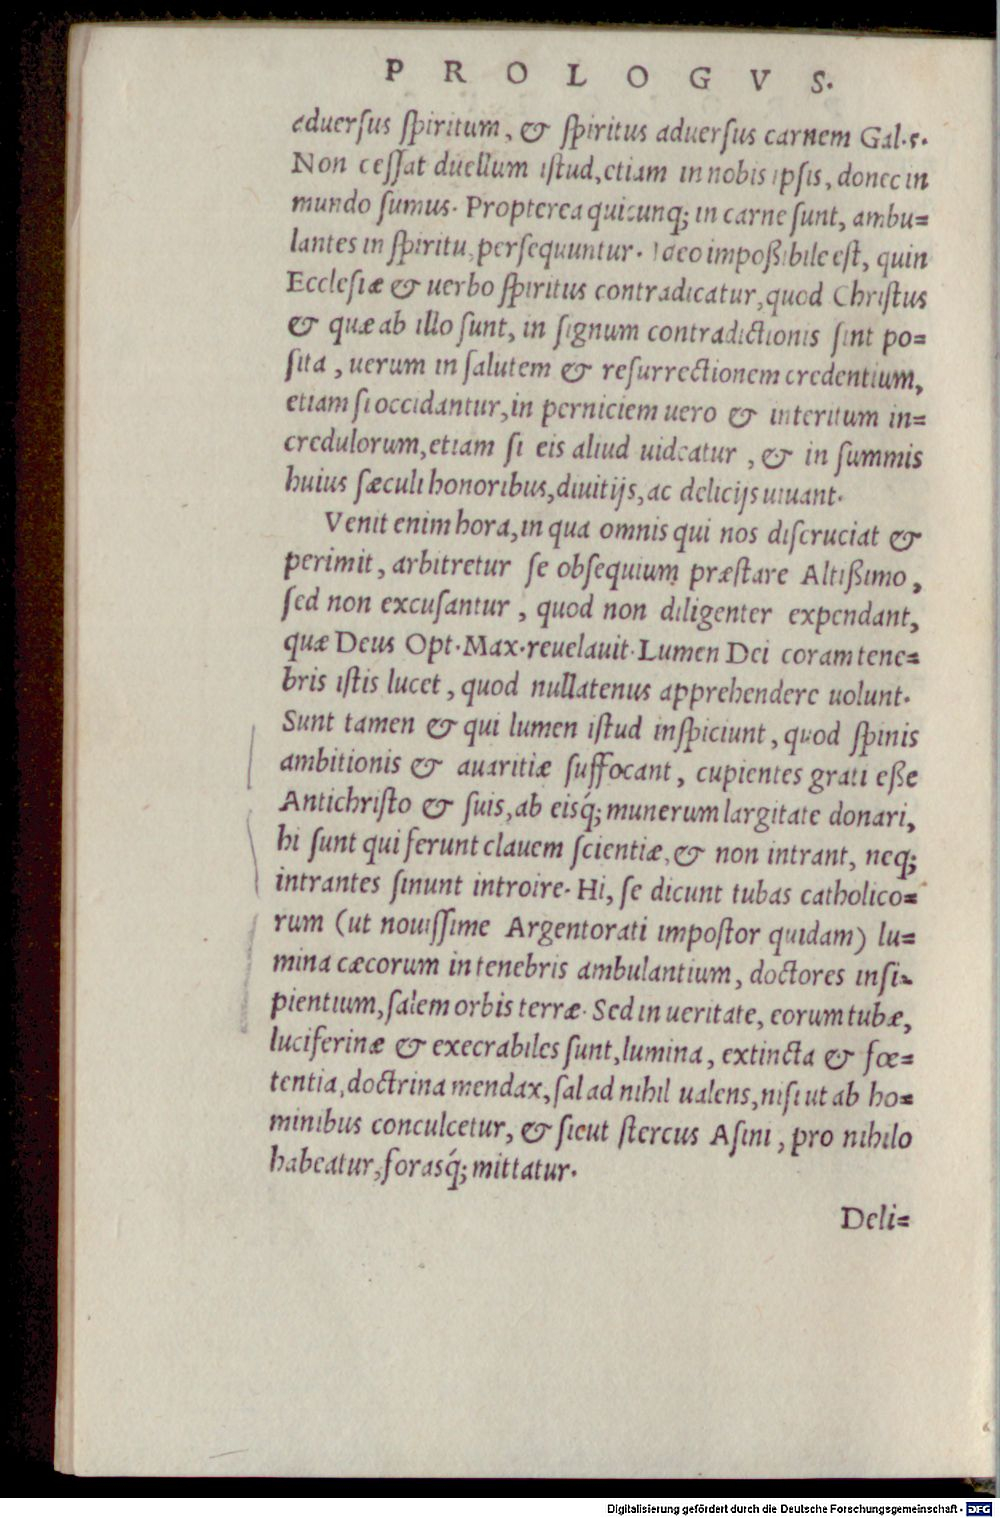 PROLOGVS.
aduerſus ſpiritum, & ſpiritus aduerſus carnem Gal.5.
Non ceſſat duellum iſtud, etiam in nobis ipſis, donec in
mundo ſumus. Propterea quicunq; in carne ſunt, ambu=
lantes in ſpiritu, perſequuntur. Ideo impoßibile eſt, quin
Eccleſiæ & uerbo ſpiritus contradicatur, quod Chriſtus
& quæ ab illo ſunt, in ſignum contradictionis ſint po=
ſita, uerum in ſalutem & reſurrectionem credentium,
etiam ſi occidantur, in perniciem uero & interitum in=
credulorum, etiam ſi eis aliud uideatur, & in ſummis
huius ſæculi honoribus, diuitijs, ac delicijs uiuant.
Venit enim hora, in qua omnis qui nos diſcruciat &
perimit, arbitretur ſe obſequium præſtare Altißimo,
ſed non excuſantur, quod non diligenter expendant,
quæ Deus Opt. Max. reuelauit. Lumen Dei coram tene=
bris iſtis lucet, quod nullatenus apprehendere uolunt.
Sunt tamen & qui lumen iſtud inſpiciunt, quod ſpinis
ambitionis & auaritiæ ſuffocant, cupientes grati eße
Antichriſto & ſuis, ab eisq́; munerum largitate donari,
hi ſunt qui ferunt clauem ſcientiæ, & non intrant, neq;
intrantes ſinunt introire. Hi, ſe dicunt tubas catholico=
rum (ut nouiſſime Argentorati impoſtor quidam) lu=
mina cæcorum in tenebris ambulantium, doctores inſi=
pientium, ſalem orbis terræ. Sed in ueritate, eorum tubæ,
luciferinæ & execrabiles ſunt, lumina, extincta & fœ=
tentia, doctrina mendax, ſal ad nihil ualens, niſi ut ab ho=
minibus conculcetur, & ſicut ſtercus Aſini, pro nihilo
habeatur, forasq́; mittatur.
Deli=
Digitalisierung gefördert durch die Deutsche Forschungsgemeinschaft - DFG